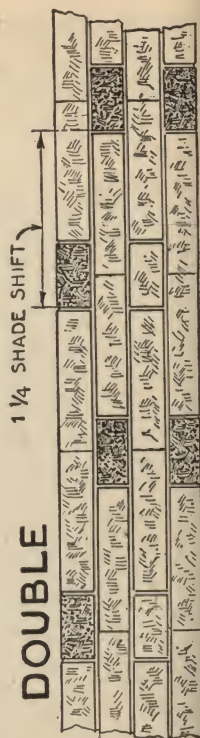 DOUBLE
1 1/4 SHADE SHIFT